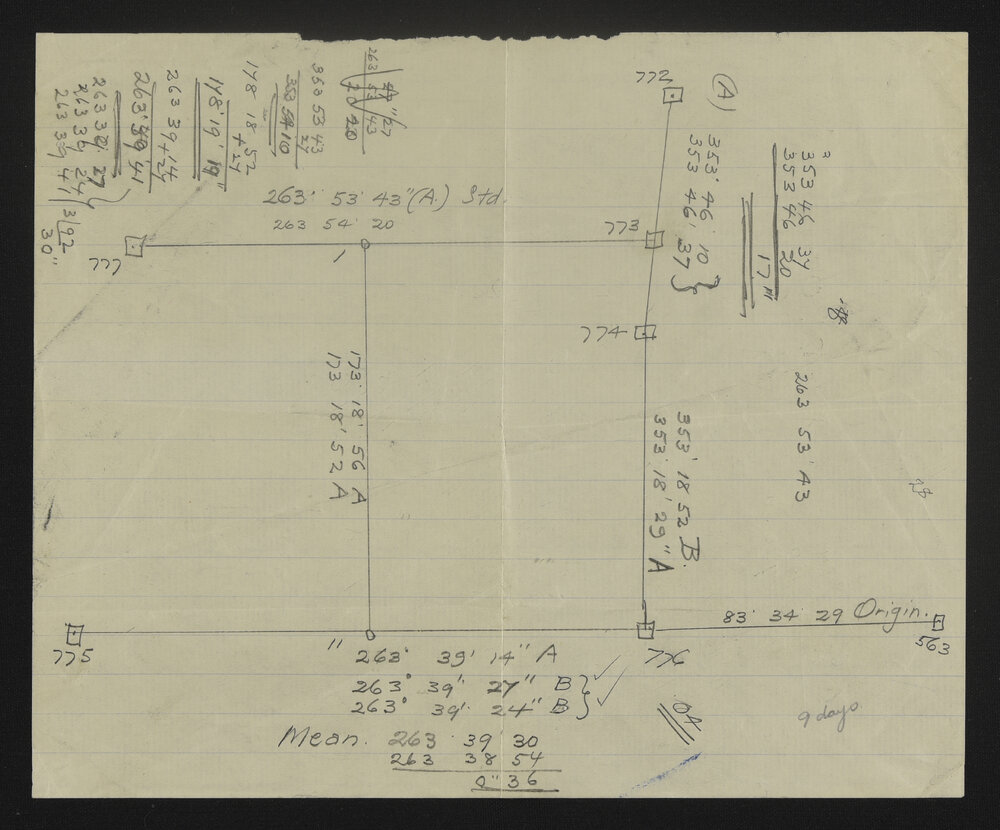 772
(A)
263° 53' 43" (A) Std.
263 54 20
777
1
773
774
353° 46' 10
353 46' 37
353 46 37
353 46 20
17"
263 53' 43
353° 18' 52 B.
353° 18' 29" A
173° 18' 56 A
173 18' 52 A
83° 34' 29 Origin.
563
775
776
11
263° 39' 14" A
263° 39' 27" B
263° 39' 24" B
Mean. 263 39 30
263 38 54
0" 36
9 days
353 53 43
27
353 54 10
178 18 52
+27
178° 19' 19"
263 39 14
+27
263° 39' 41
263 39 27
263 39 24
263 39 41
3)92
30"